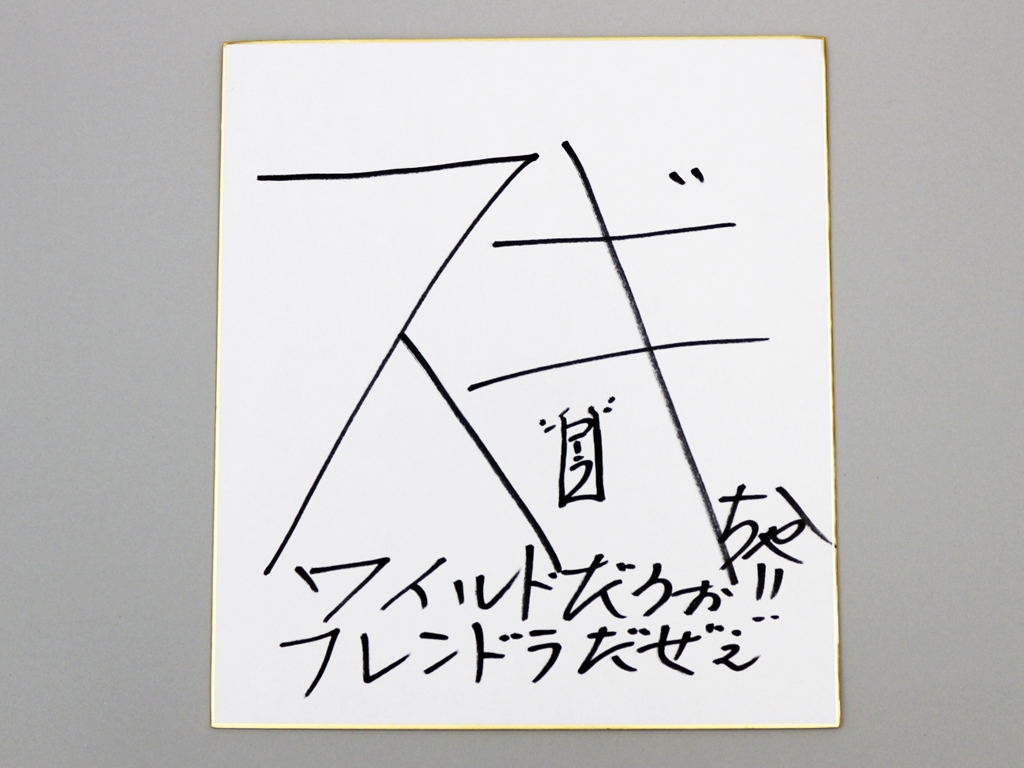 スギ
コーラ
ちゃん
ワイルドだろぉ!!
フレンドラだぜぇ